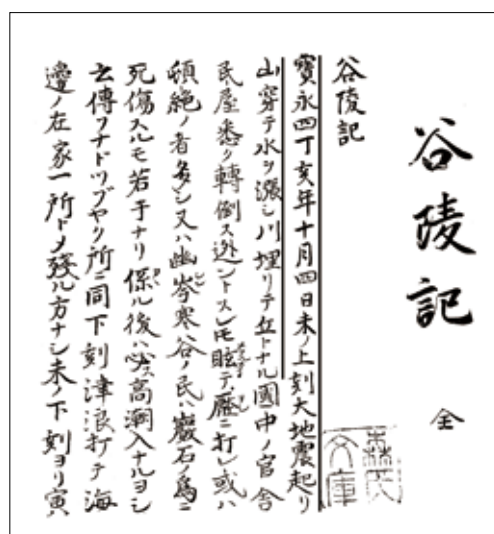 谷陵記 全
森氏文庫
谷陵記
寶永四丁亥年十月四日未ノ上刻大地震起リ
山穿テ水ヲ漲シ川埋リテ丘トナル國中ノ官舎
民屋悉ク轉倒ス迯ントスレ𪜈眩テ壓ニ打レ或ハ
頓絶ノ者多シ又ハ幽岑寒谷ノ民ハ巖石ノ爲ニ
死傷スルモ若干ナリ係ル後ハ必ス高潮入ナルヨシ
云傳フナドツブヤク所ニ同下刻津浪打テ海
邊ノ在家一所トメ殘ル方ナシ未ノ下刻ヨリ寅ハ